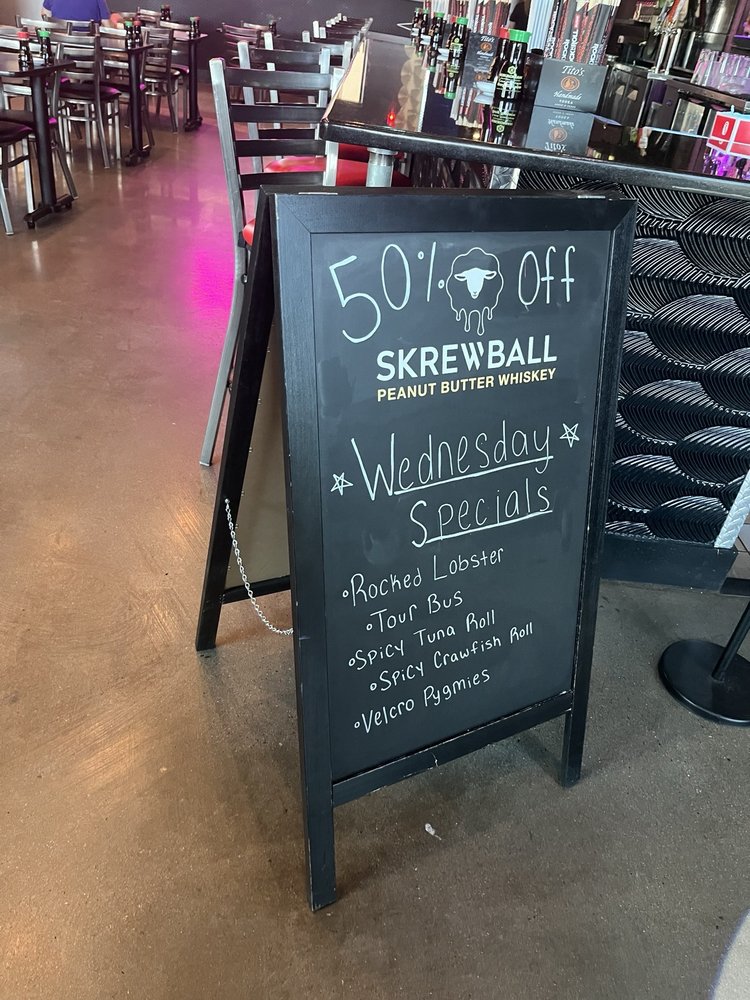 50% Off
SKREWBALL
PEANUT BUTTER WHISKEY
Wednesday
Specials
Rocked Lobster
Tour Bus
Spicy Tuna Roll
Spicy Crawfish Roll
Velcro Pygmies
Tito's
Handmade
VODKA